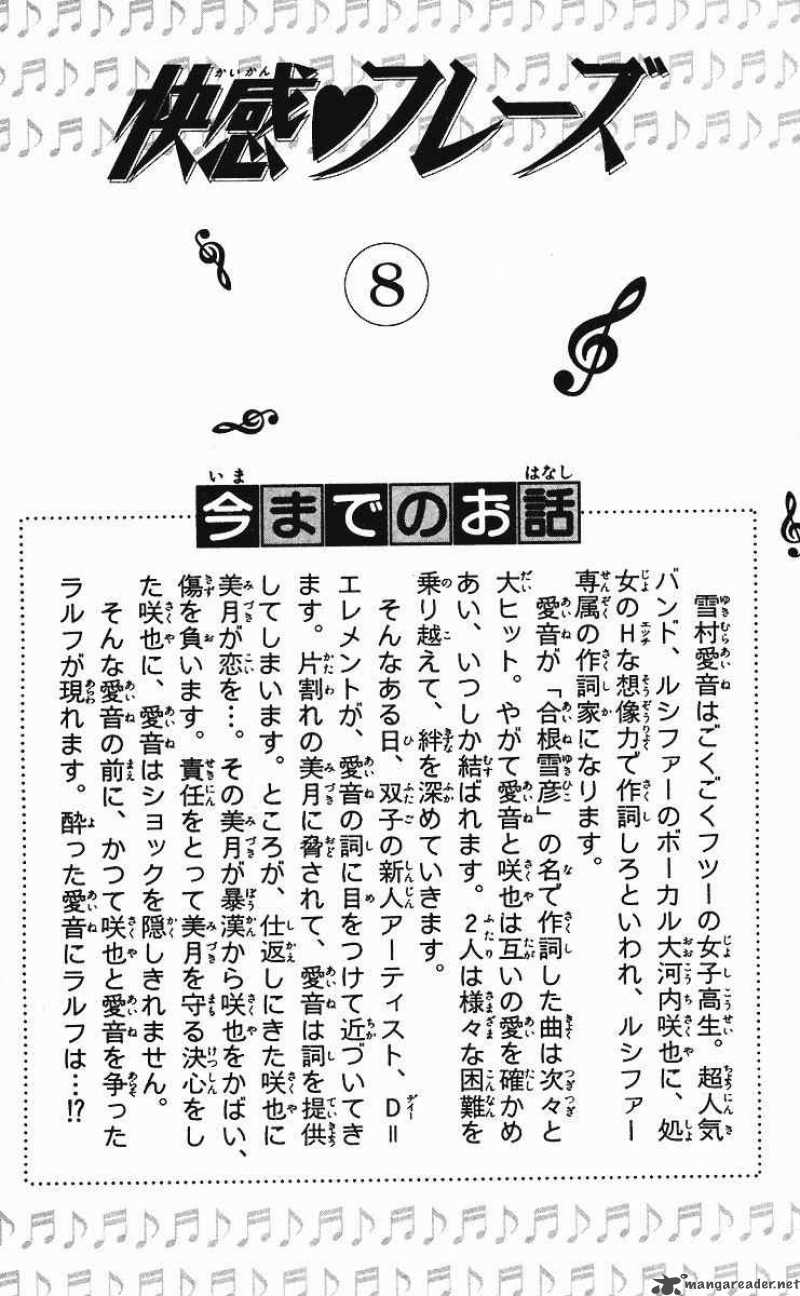 快感♥フレーズ
かいかん
8
今までのお話
いま はなし
雪村愛音はごくごくフツーの女子高生。超人気
バンド、ルシファーのボーカル大河内咲也に、処
女のHな想像力で作詞しろといわれ、ルシファー
専属の作詞家になります。
愛音が「合根雪彦」の名で作詞した曲は次々と
大ヒット。やがて愛音と咲也は互いの愛を確かめ
あい、いつしか結ばれます。2人は様々な困難を
乗り越えて、絆を深めていきます。
そんなある日、双子の新人アーティスト、D=
エレメントが、愛音の詞に目をつけて近づいてき
ます。片割れの美月に脅されて、愛音は詞を提供
してしまいます。ところが、仕返しにきた咲也に
美月が恋を…。その美月が暴漢から咲也をかばい、
傷を負います。責任をとって美月を守る決心をし
た咲也に、愛音はショックを隠しきれません。
そんな愛音の前に、かつて咲也と愛音を争った
ラルフが現れます。酔った愛音にラルフは…!?
mangareader.net